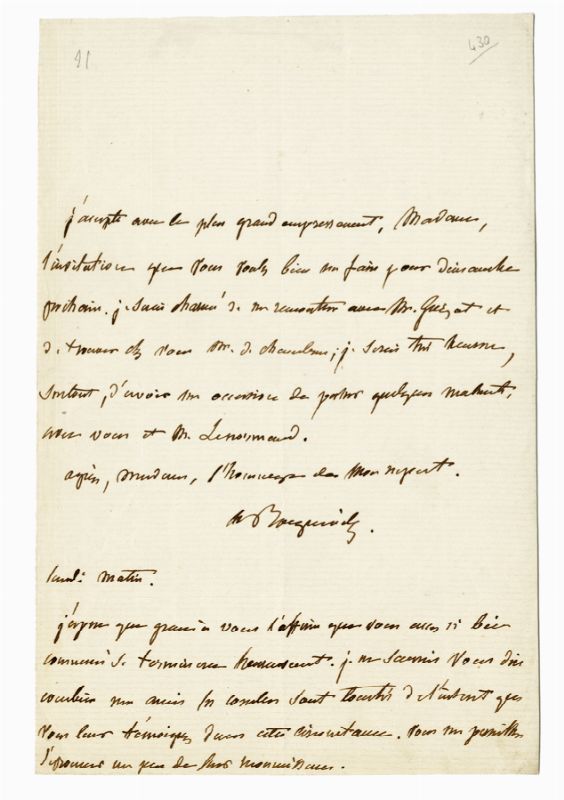 91
430
j'accepte avec le plus grand empressement, Madame,
l'invitation que vous voulez bien me faire pour dimanche
prochain. je serai charmé de me rencontrer avec Mr. Guizot et
de trouver chez vous Mr. de ; je serai très heureux,
surtout, d'avoir une occasion de passer quelques instants,
avec vous et M. Lenormand.
agréez, madame, l'hommage de mon respect.
matin.
j'espère que grâce à vous l'affaire que vous avez si bien
commencée se terminera heureusement. je ne saurais vous dire
combien mes amis sont touchés de l'intérêt que
vous leur témoignez dans cette circonstance. vous me permettrez
un peu de leur reconnaissance.